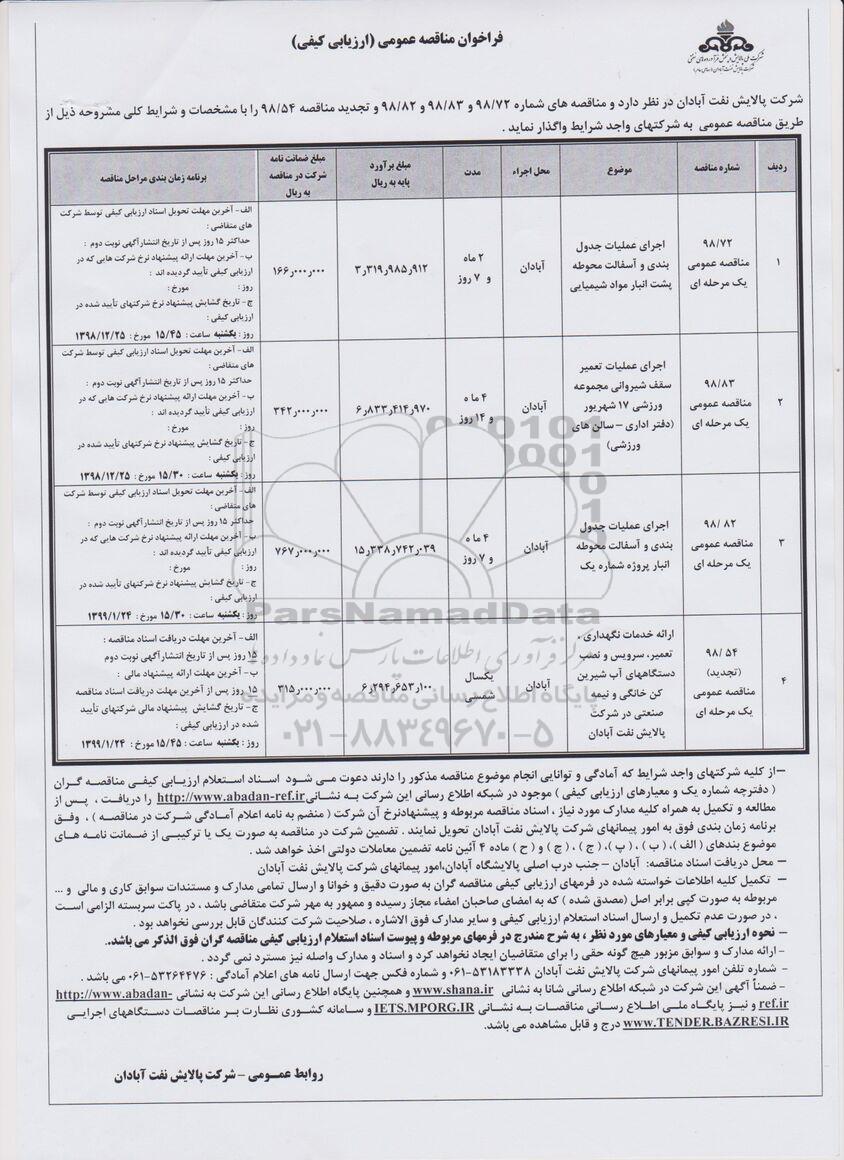 فراخوان مناقصه عمومی (ارزیابی کیفی)
شرکت ملی پالایش و پخش فرآورده‌های نفتی
شرکت پالایش نفت آبادان (سهامی عام)
شرکت پالایش نفت آبادان در نظر دارد و مناقصه های شماره ۹۸/۷۲ و ۹۸/۸۳ و ۹۸/۸۲ و تجدید مناقصه ۹۸/۵۴ را با مشخصات و شرایط کلی مشروحه ذیل از
طریق مناقصه عمومی به شرکتهای واجد شرایط واگذار نماید .
ردیف شماره مناقصه موضوع محل اجراء مدت مبلغ برآورد پایه به ریال مبلغ ضمانت نامه شرکت در مناقصه به ریال برنامه زمان بندی مراحل مناقصه
۱
۹۸/۷۲
مناقصه عمومی
یک مرحله ای
اجرای عملیات جدول
بندی و آسفالت محوطه
پشت انبار مواد شیمیایی
آبادان
۲ ماه
و ۷ روز
۳٫۳۱۹٫۹۸۵٫۹۱۲
۱۶۶٫۰۰۰٫۰۰۰
الف- آخرین مهلت تحویل اسناد ارزیابی کیفی توسط شرکت
های متقاضی :
حداکثر ۱۵ روز پس از تاریخ انتشارآگهی نوبت دوم :
ب- آخرین مهلت ارائه پیشنهاد نرخ شرکت هایی که در
ارزیابی کیفی تأیید گردیده اند :
روز : مورخ :
ج- تاریخ گشایش پیشنهاد نرخ شرکتهای تأیید شده در
ارزیابی کیفی :
روز : یکشنبه ساعت : ۱۵/۴۵ مورخ : ۱۳۹۸/۱۲/۲۵
۲
۹۸/۸۳
مناقصه عمومی
یک مرحله ای
اجرای عملیات تعمیر
سقف شیروانی مجموعه
ورزشی ۱۷ شهریور
(دفتر اداری – سالن های
ورزشی)
آبادان
۴ ماه
و ۱۴ روز
۶٫۸۳۳٫۴۱۴٫۹۷۰
۳۴۲٫۰۰۰٫۰۰۰
الف- آخرین مهلت تحویل اسناد ارزیابی کیفی توسط شرکت
های متقاضی :
حداکثر ۱۵ روز پس از تاریخ انتشارآگهی نوبت دوم :
ب- آخرین مهلت ارائه پیشنهاد نرخ شرکت هایی که در
ارزیابی کیفی تأیید گردیده اند :
روز : مورخ :
ج- تاریخ گشایش پیشنهاد نرخ شرکتهای تأیید شده در
ارزیابی کیفی :
روز : یکشنبه ساعت : ۱۵/۳۰ مورخ : ۱۳۹۸/۱۲/۲۵
۳
۹۸/ ۸۲
مناقصه عمومی
یک مرحله ای
اجرای عملیات جدول
بندی و آسفالت محوطه
انبار پروژه شماره یک
آبادان
۴ ماه
و ۷ روز
۱۵٫۳۳۸٫۷۴۲٫۰۳۹
۷۶۷٫۰۰۰٫۰۰۰
الف- آخرین مهلت تحویل اسناد ارزیابی کیفی توسط شرکت
های متقاضی :
حداکثر ۱۵ روز پس از تاریخ انتشارآگهی نوبت دوم :
ب- آخرین مهلت ارائه پیشنهاد نرخ شرکت هایی که در
ارزیابی کیفی تأیید گردیده اند :
روز : مورخ :
ج- تاریخ گشایش پیشنهاد نرخ شرکتهای تأیید شده در
ارزیابی کیفی :
روز : یکشنبه ساعت : ۱۵/۳۰ مورخ : ۱۳۹۹/۱/۲۴
۴
۹۸/ ۵۴
(تجدید)
مناقصه عمومی
یک مرحله ای
ارائه خدمات نگهداری ،
تعمیر، سرویس و نصب
دستگاههای آب شیرین
کن خانگی و نیمه
صنعتی در شرکت
پالایش نفت آبادان
آبادان
یکسال
شمسی
۶٫۲۹۴٫۶۵۳٫۱۰۰
۳۱۵٫۰۰۰٫۰۰۰
الف- آخرین مهلت دریافت اسناد مناقصه :
۱۵ روز پس از تاریخ انتشارآگهی نوبت دوم
ب- آخرین مهلت ارائه پیشنهاد مالی :
۱۵ روز پس از آخرین مهلت دریافت اسناد مناقصه
ج- تاریخ گشایش پیشنهاد مالی شرکتهای تأیید
شده در ارزیابی کیفی :
روز : یکشنبه ساعت : ۱۵/۴۵ مورخ : ۱۳۹۹/۱/۲۴
ParsNamadData
مرکز فرآوری اطلاعات پارس نماد داده ها
پایگاه اطلاع رسانی مناقصه و مزایده
۰۲۱-۸۸۳۴۹۶۷۰-۵
–از کلیه شرکتهای واجد شرایط که آمادگی و توانایی انجام موضوع مناقصه مذکور را دارند دعوت می شود اسناد استعلام ارزیابی کیفی مناقصه گران
( دفترچه شماره یک و معیارهای ارزیابی کیفی ) موجود در شبکه اطلاع رسانی این شرکت به نشانی http://www.abadan-ref.ir را دریافت ، پس از
مطالعه و تکمیل به همراه کلیه مدارک مورد نیاز ، اسناد مناقصه مربوطه و پیشنهادنرخ آن شرکت ( منضم به نامه اعلام آمادگی شرکت در مناقصه ) ، وفق
برنامه زمان بندی فوق به امور پیمانهای شرکت پالایش نفت آبادان تحویل نمایند . تضمین شرکت در مناقصه به صورت یک یا ترکیبی از ضمانت نامه های
موضوع بندهای ( الف )، ( ب ) ، ( پ )، ( ج ) ، ( چ ) و ( ح ) ماده ۴ آئین نامه تضمین معاملات دولتی اخذ خواهد شد .
– محل دریافت اسناد مناقصه: آبادان – جنب درب اصلی پالایشگاه آبادان،امور پیمانهای شرکت پالایش نفت آبادان
– تکمیل کلیه اطلاعات خواسته شده در فرمهای ارزیابی کیفی مناقصه گران به صورت دقیق و خوانا و ارسال تمامی مدارک و مستندات سوابق کاری و مالی و ...
مربوطه به صورت کپی برابر اصل (مصدق شده ) که به امضای صاحبان امضاء مجاز رسیده و ممهور به مهر شرکت متقاضی باشد ، در پاکت سربسته الزامی است
، در صورت عدم تکمیل و ارسال اسناد استعلام ارزیابی کیفی و سایر مدارک فوق الاشاره ، صلاحیت شرکت کنندگان قابل بررسی نخواهد بود .
– نحوه ارزیابی کیفی و معیارهای مورد نظر ، به شرح مندرج در فرمهای مربوطه و پیوست اسناد استعلام ارزیابی کیفی مناقصه گران فوق الذکر می باشد.
– ارائه مدارک و سوابق مزبور هیچ گونه حقی را برای متقاضیان ایجاد نخواهد کرد و اسناد و مدارک واصله نیز مسترد نمی گردد .
– شماره تلفن امور پیمانهای شرکت پالایش نفت آبادان ۵۳۱۸۳۳۳۸-۰۶۱ و شماره فکس جهت ارسال نامه های اعلام آمادگی : ۵۳۲۶۴۴۷۶-۰۶۱ می باشد .
– ضمناً آگهی این شرکت در شبکه اطلاع رسانی شانا به نشانی www.shana.ir و همچنین پایگاه اطلاع رسانی این شرکت به نشانی http://www.abadan-
ref.ir و نیز پایگاه ملی اطلاع رسانی مناقصات به نشانی IETS.MPORG.IR و سامانه کشوری نظارت بر مناقصات دستگاههای اجرایی
www.TENDER.BAZRESI.IR درج و قابل مشاهده می باشد.
روابط عمومی – شرکت پالایش نفت آبادان